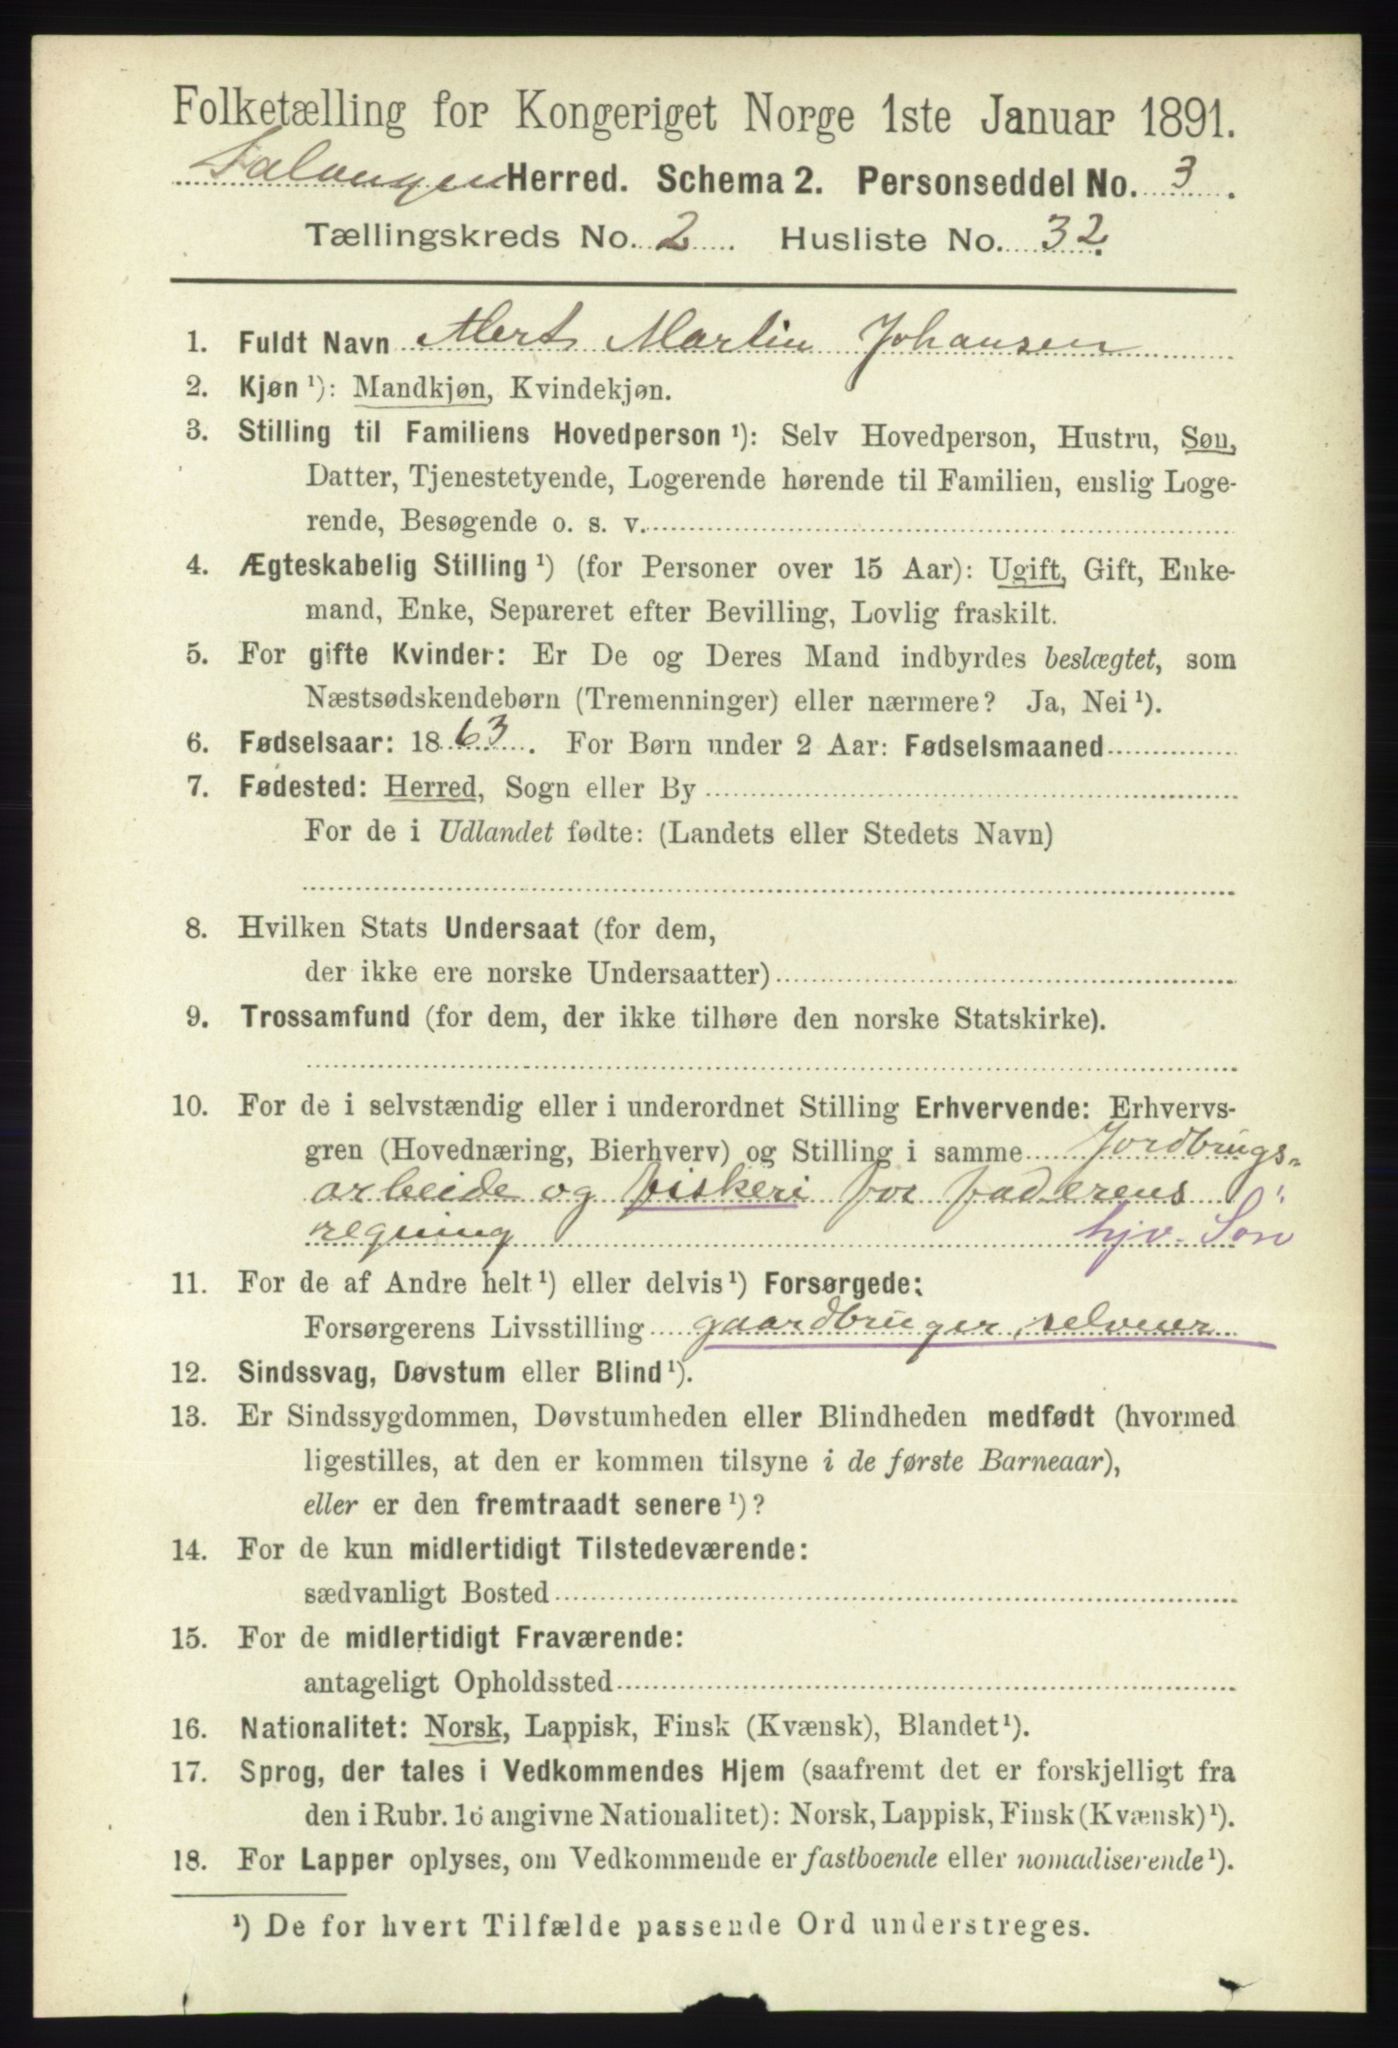 Folketælling for Kongeriget Norge 1ste Januar 1891.
Salangen Herred. Schema 2. Personseddel No. 3.
Tællingskreds No. 2. Husliste No. 32.
1. Fuldt Navn Mert Martin Johansen
2. Kjøn ¹): Mandkjøn, Kvindekjøn.
3. Stilling til Familiens Hovedperson ¹): Selv Hovedperson, Hustru, Søn,
Datter, Tjenestetyende, Logerende hørende til Familien, enslig Loge-
rende, Besøgende o. s. v.
4. Ægteskabelig Stilling ¹) (for Personer over 15 Aar): Ugift, Gift, Enke-
mand, Enke, Separeret efter Bevilling, Lovlig fraskilt.
5. For gifte Kvinder: Er De og Deres Mand indbyrdes beslægtet, som
Næstsødskendebørn (Tremenninger) eller nærmere? Ja, Nei ¹).
6. Fødselsaar: 1863. For Børn under 2 Aar: Fødselsmaaned
7. Fødested: Herred, Sogn eller By
For de i Udlandet fødte: (Landets eller Stedets Navn)
8. Hvilken Stats Undersaat (for dem,
der ikke ere norske Undersaatter)
9. Trossamfund (for dem, der ikke tilhøre den norske Statskirke).
10. For de i selvstændig eller i underordnet Stilling Erhvervende: Erhvervs-
gren (Hovednæring, Bierhverv) og Stilling i samme Jordbrugs-
arbeide og fiskeri for faderens
regning hjv. Søn
11. For de af Andre helt ¹) eller delvis ¹) Forsørgede:
Forsørgerens Livsstilling gaardbruger, selveier
12. Sindssvag, Døvstum eller Blind ¹).
13. Er Sindssygdommen, Døvstumheden eller Blindheden medfødt (hvormed
ligestilles, at den er kommen tilsyne i de første Barneaar),
eller er den fremtraadt senere ¹)?
14. For de kun midlertidigt Tilstedeværende:
sædvanligt Bosted
15. For de midlertidigt Fraværende:
antageligt Opholdssted
16. Nationalitet: Norsk, Lappisk, Finsk (Kvænsk), Blandet ¹).
17. Sprog, der tales i Vedkommendes Hjem (saafremt det er forskjelligt fra
den i Rubr. 16 angivne Nationalitet): Norsk, Lappisk, Finsk (Kvænsk) ¹).
18. For Lapper oplyses, om Vedkommende er fastboende eller nomadiserende ¹).
¹) De for hvert Tilfælde passende Ord understreges.